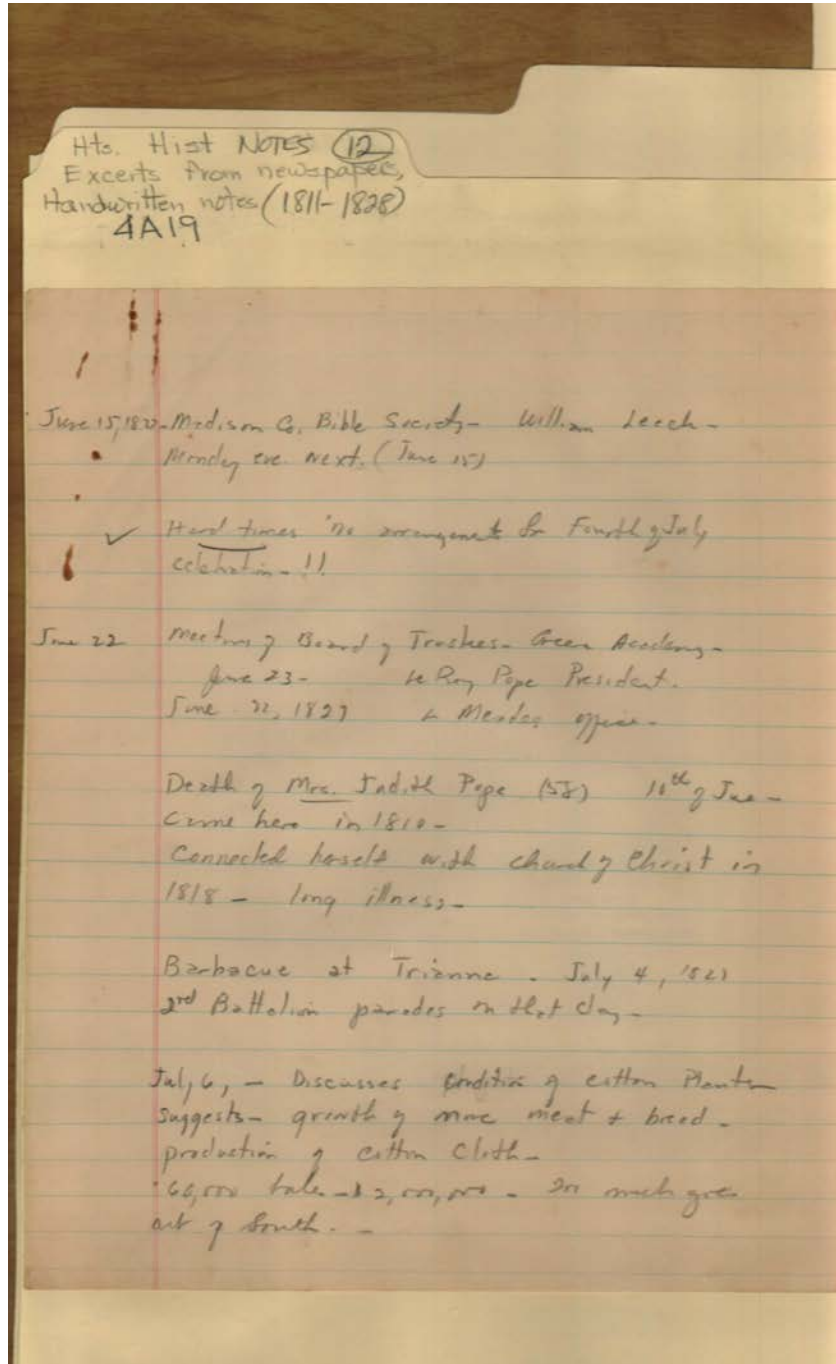 Hts. Hist NOTES 12
Excerts from newspapers,
Handwritten notes (1811-1828)
4A19
June 15, - Madison Co. Bible Society - William Leech -
Monday eve. next. (June 15)
✓ Hard times "no arrangements for Fourth of July
celebration - !!
June 22 Meeting of Board of Trustees - Green Academy -
June 23 - Le Roy Pope President.
June 22, office -
Death of Mrs. Judith Pope 10th of Jue -
Came here in 1810 -
Connected herself with church of Christ in
1818 - long illness -
Barbacue at Trianne . July 4,
2nd Battalion parades on that day -
July 6, - Discusses condition of cotton Planter
Suggests - growth of more meat + bread -
production of cotton cloth -
60,000 bales - $2,000,000 - much goes
out of South. -